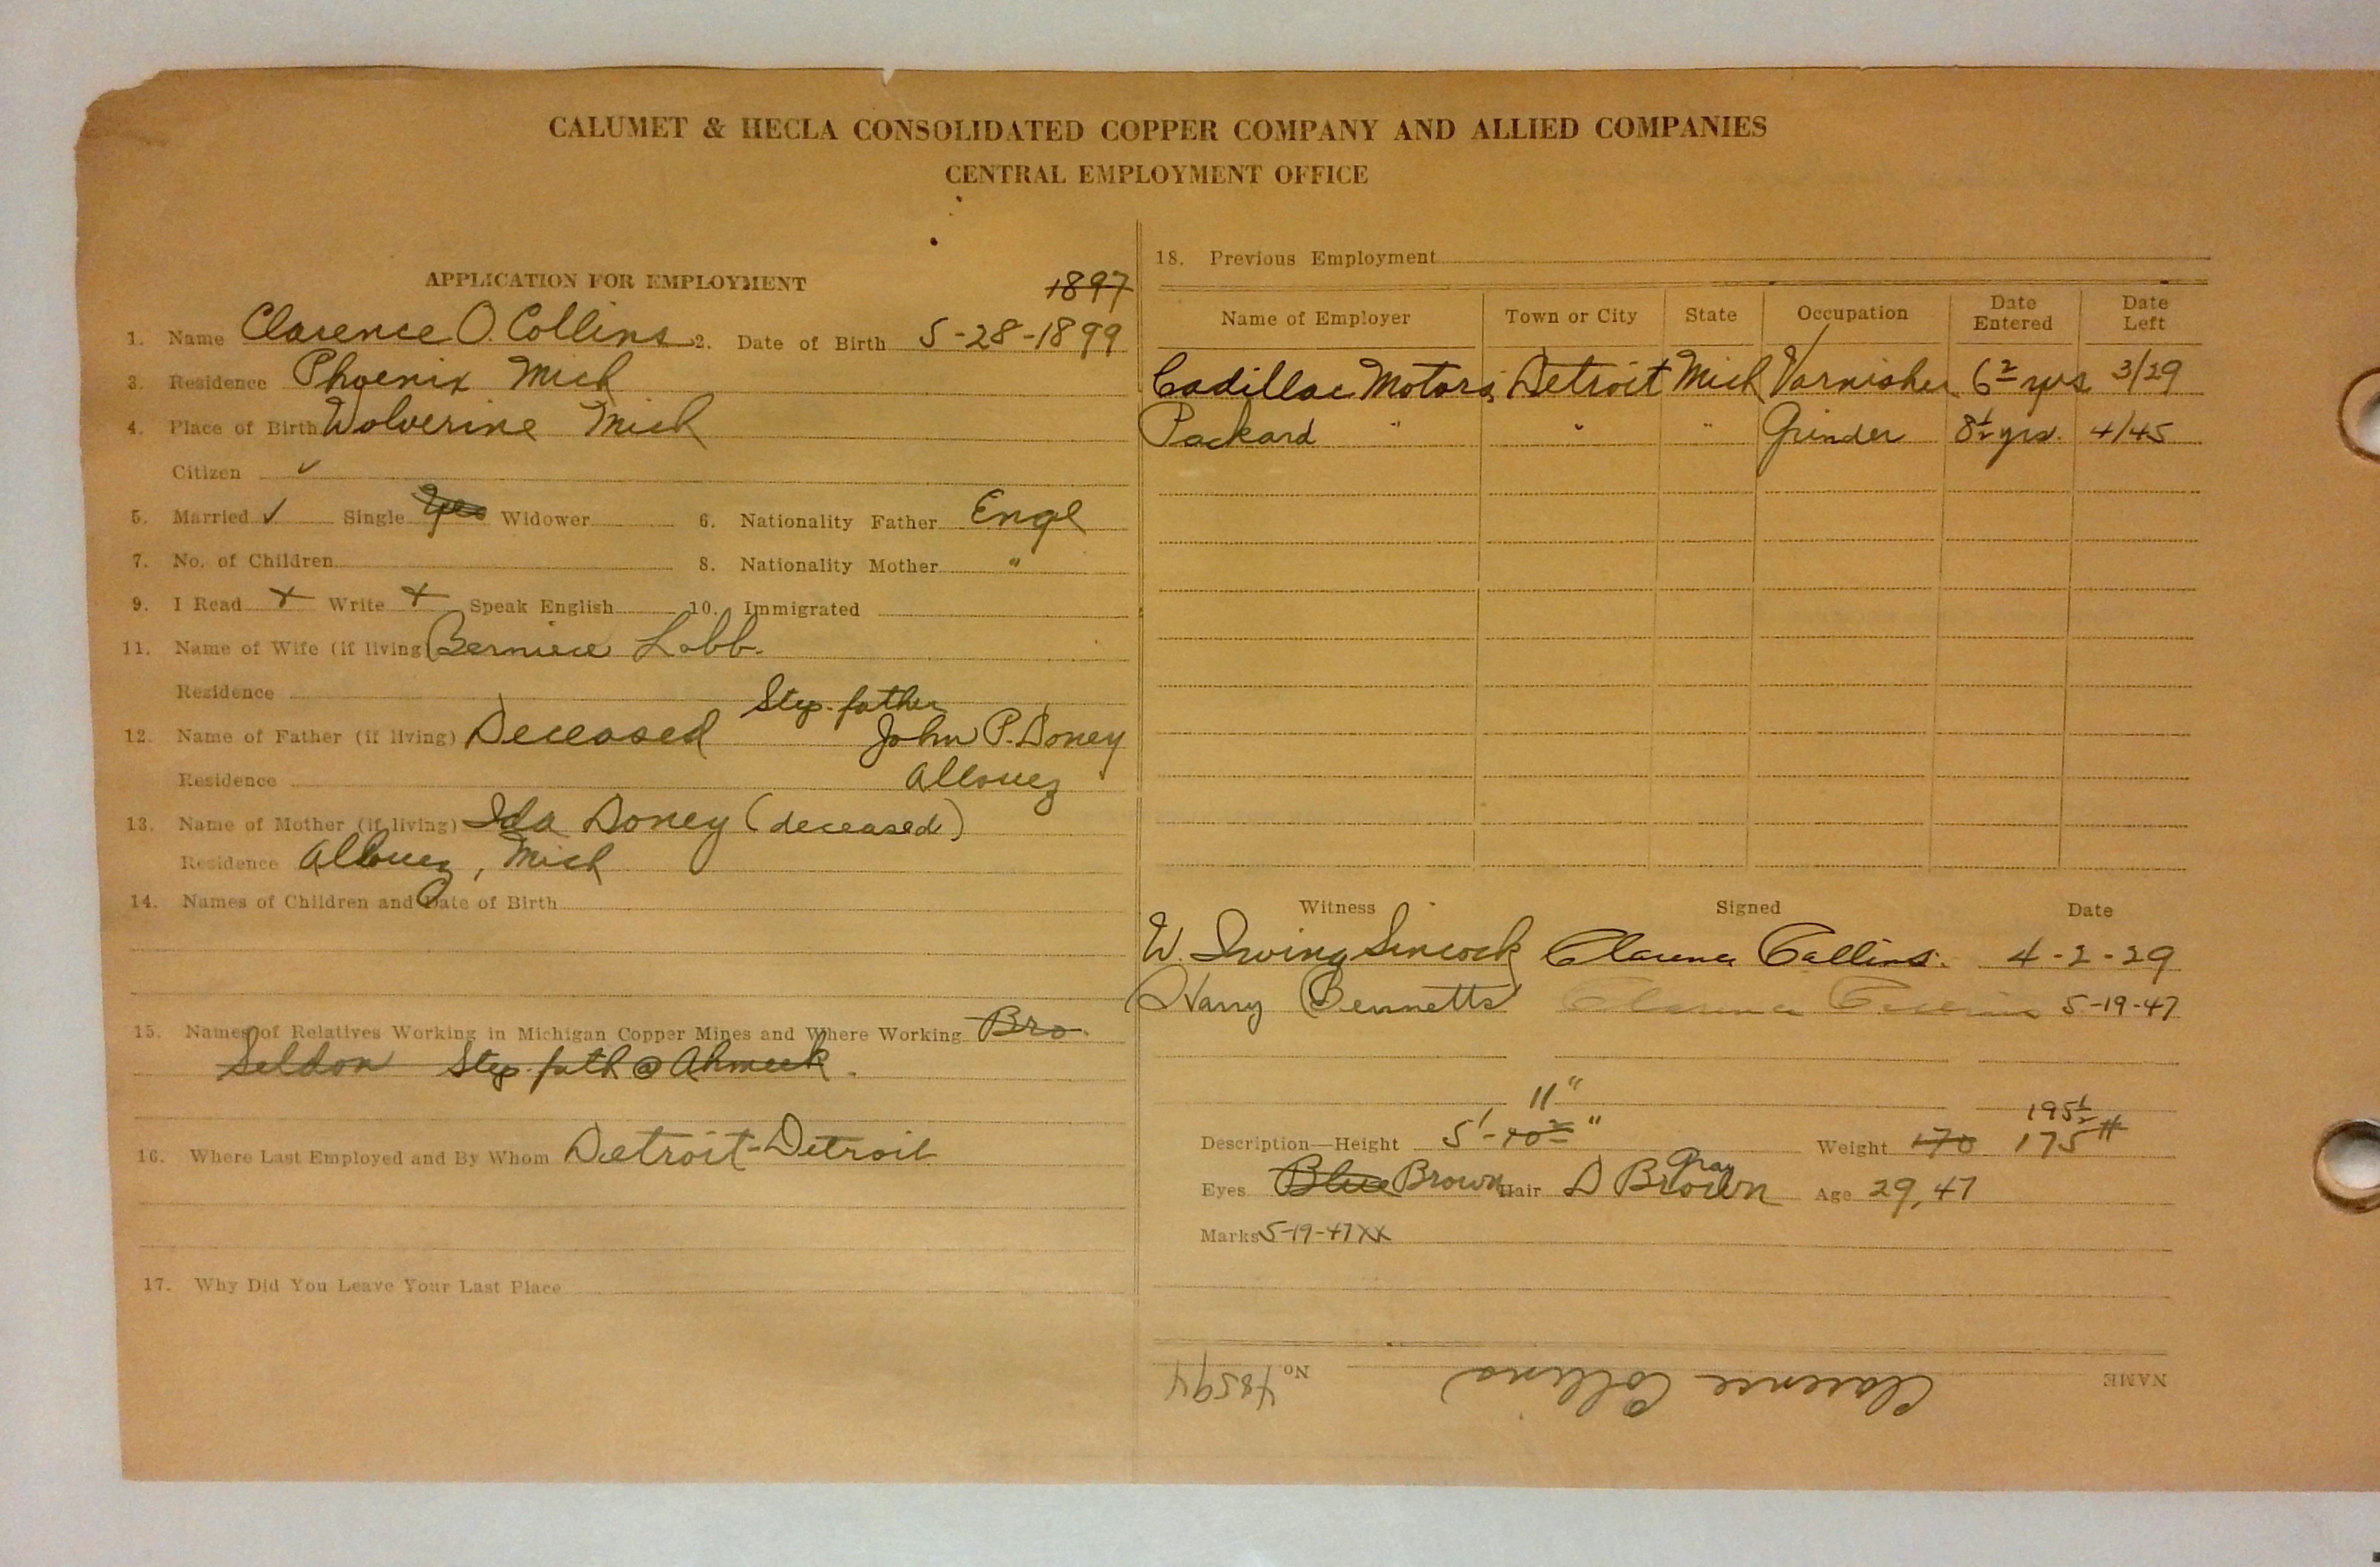 CALUMET & HECLA CONSOLIDATED COPPER COMPANY AND ALLIED COMPANIES
CENTRAL EMPLOYMENT OFFICE
APPLICATION FOR EMPLOYMENT
1897
1. Name Clarence O. Collins 2. Date of Birth 5-28-1899
3. Residence Phoenix Mich
4. Place of Birth Wolverine Mich
Citizen ✓
5. Married ✓ Single Yes Widower 6. Nationality Father Engl
7. No. of Children 8. Nationality Mother "
9. I Read + Write + Speak English 10. Immigrated
11. Name of Wife (if living) Berniece Lobb.
Residence
Step-father
12. Name of Father (if living) Deceased John P. Doney
Residence Allouez
13. Name of Mother (if living) Ida Doney (deceased)
Residence Allouez, Mich
14. Names of Children and Date of Birth
15. Names of Relatives Working in Michigan Copper Mines and Where Working Bro.
Seldon Step. fath @ Ahmeek.
16. Where Last Employed and By Whom Detroit-Detroit
17. Why Did You Leave Your Last Place
18. Previous Employment
Name of Employer Town or City State Occupation Date Entered Date Left
Cadillac Motors Detroit Mich Varnisher 6 yrs 3/29
Packard " " " Grinder 8½ yrs. 4/45
Witness Signed Date
W. Irving Sincock Clarence Collins. 4-2-29
Harry Bennetts Clarence Collins 5-19-47
11" 195½
Description—Height 5'-10" Weight 170 175#
Gray
Eyes Blue Brown Hair D Brown Age 29, 47
Marks 5-19-47 XX
NAME Clarence Collins No 48594